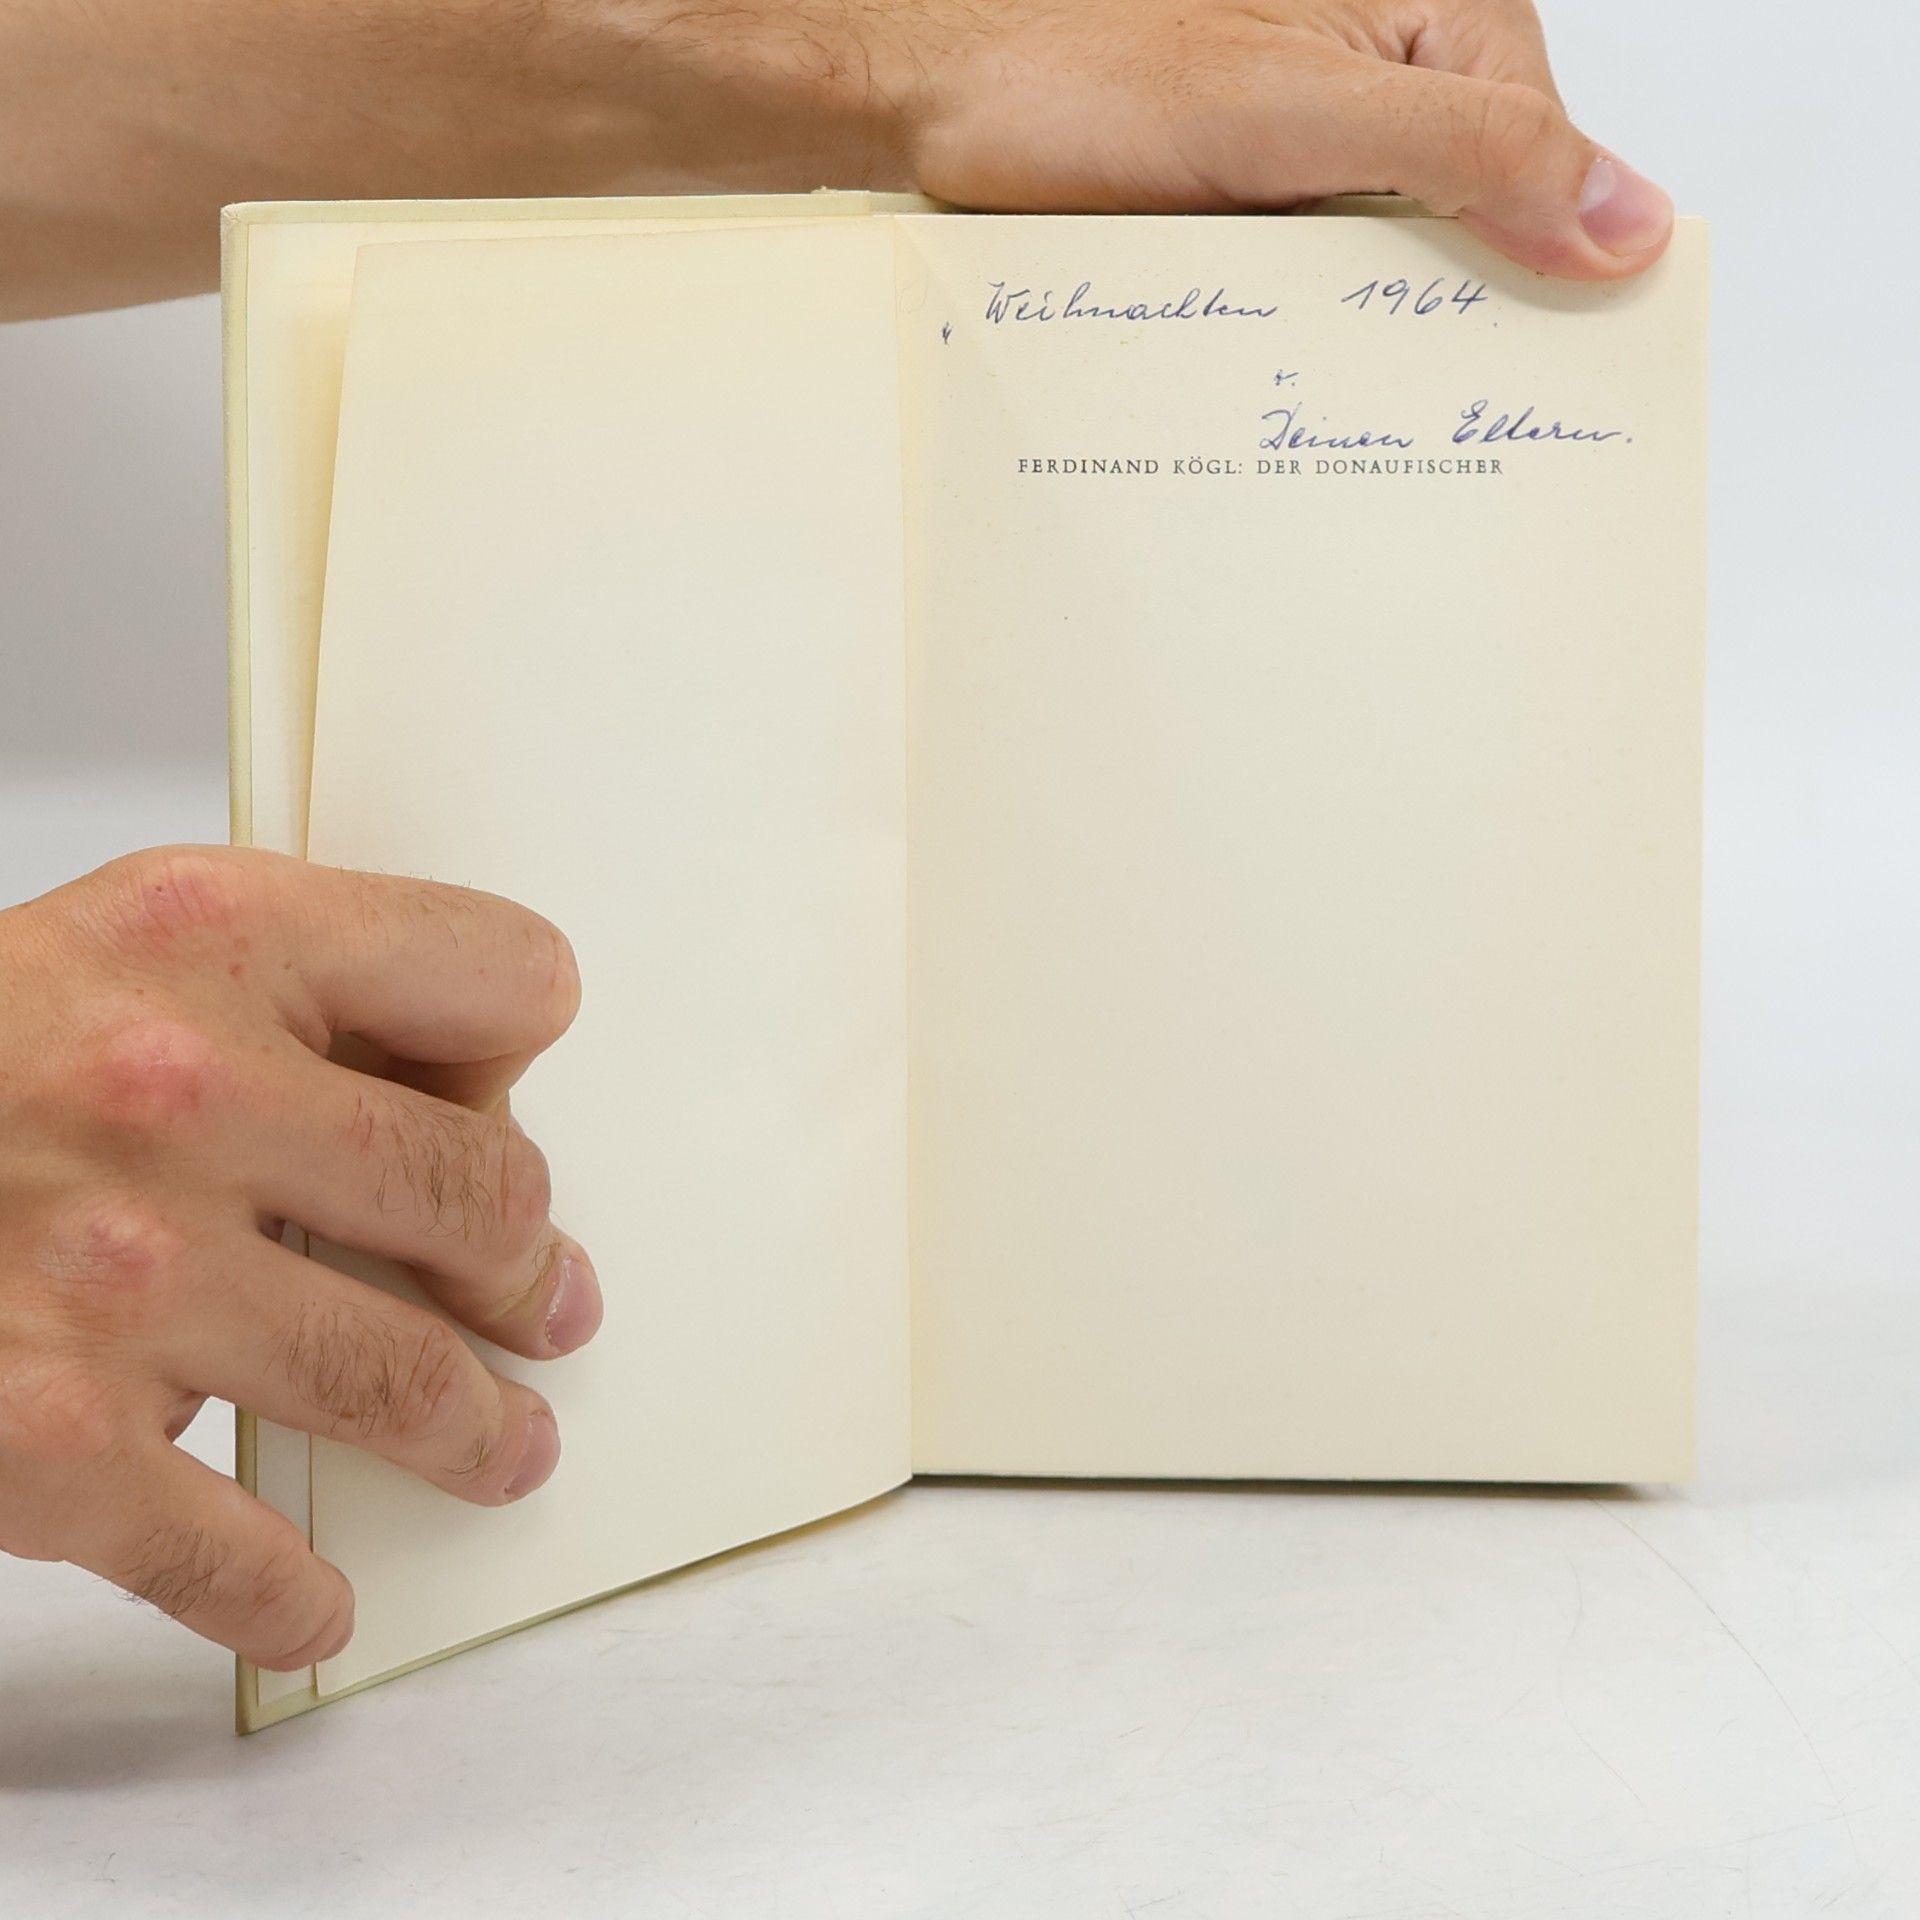 Weihnachten 1964.
v.
Deinen Eltern.
FERDINAND KÖGL: DER DONAUFISCHER